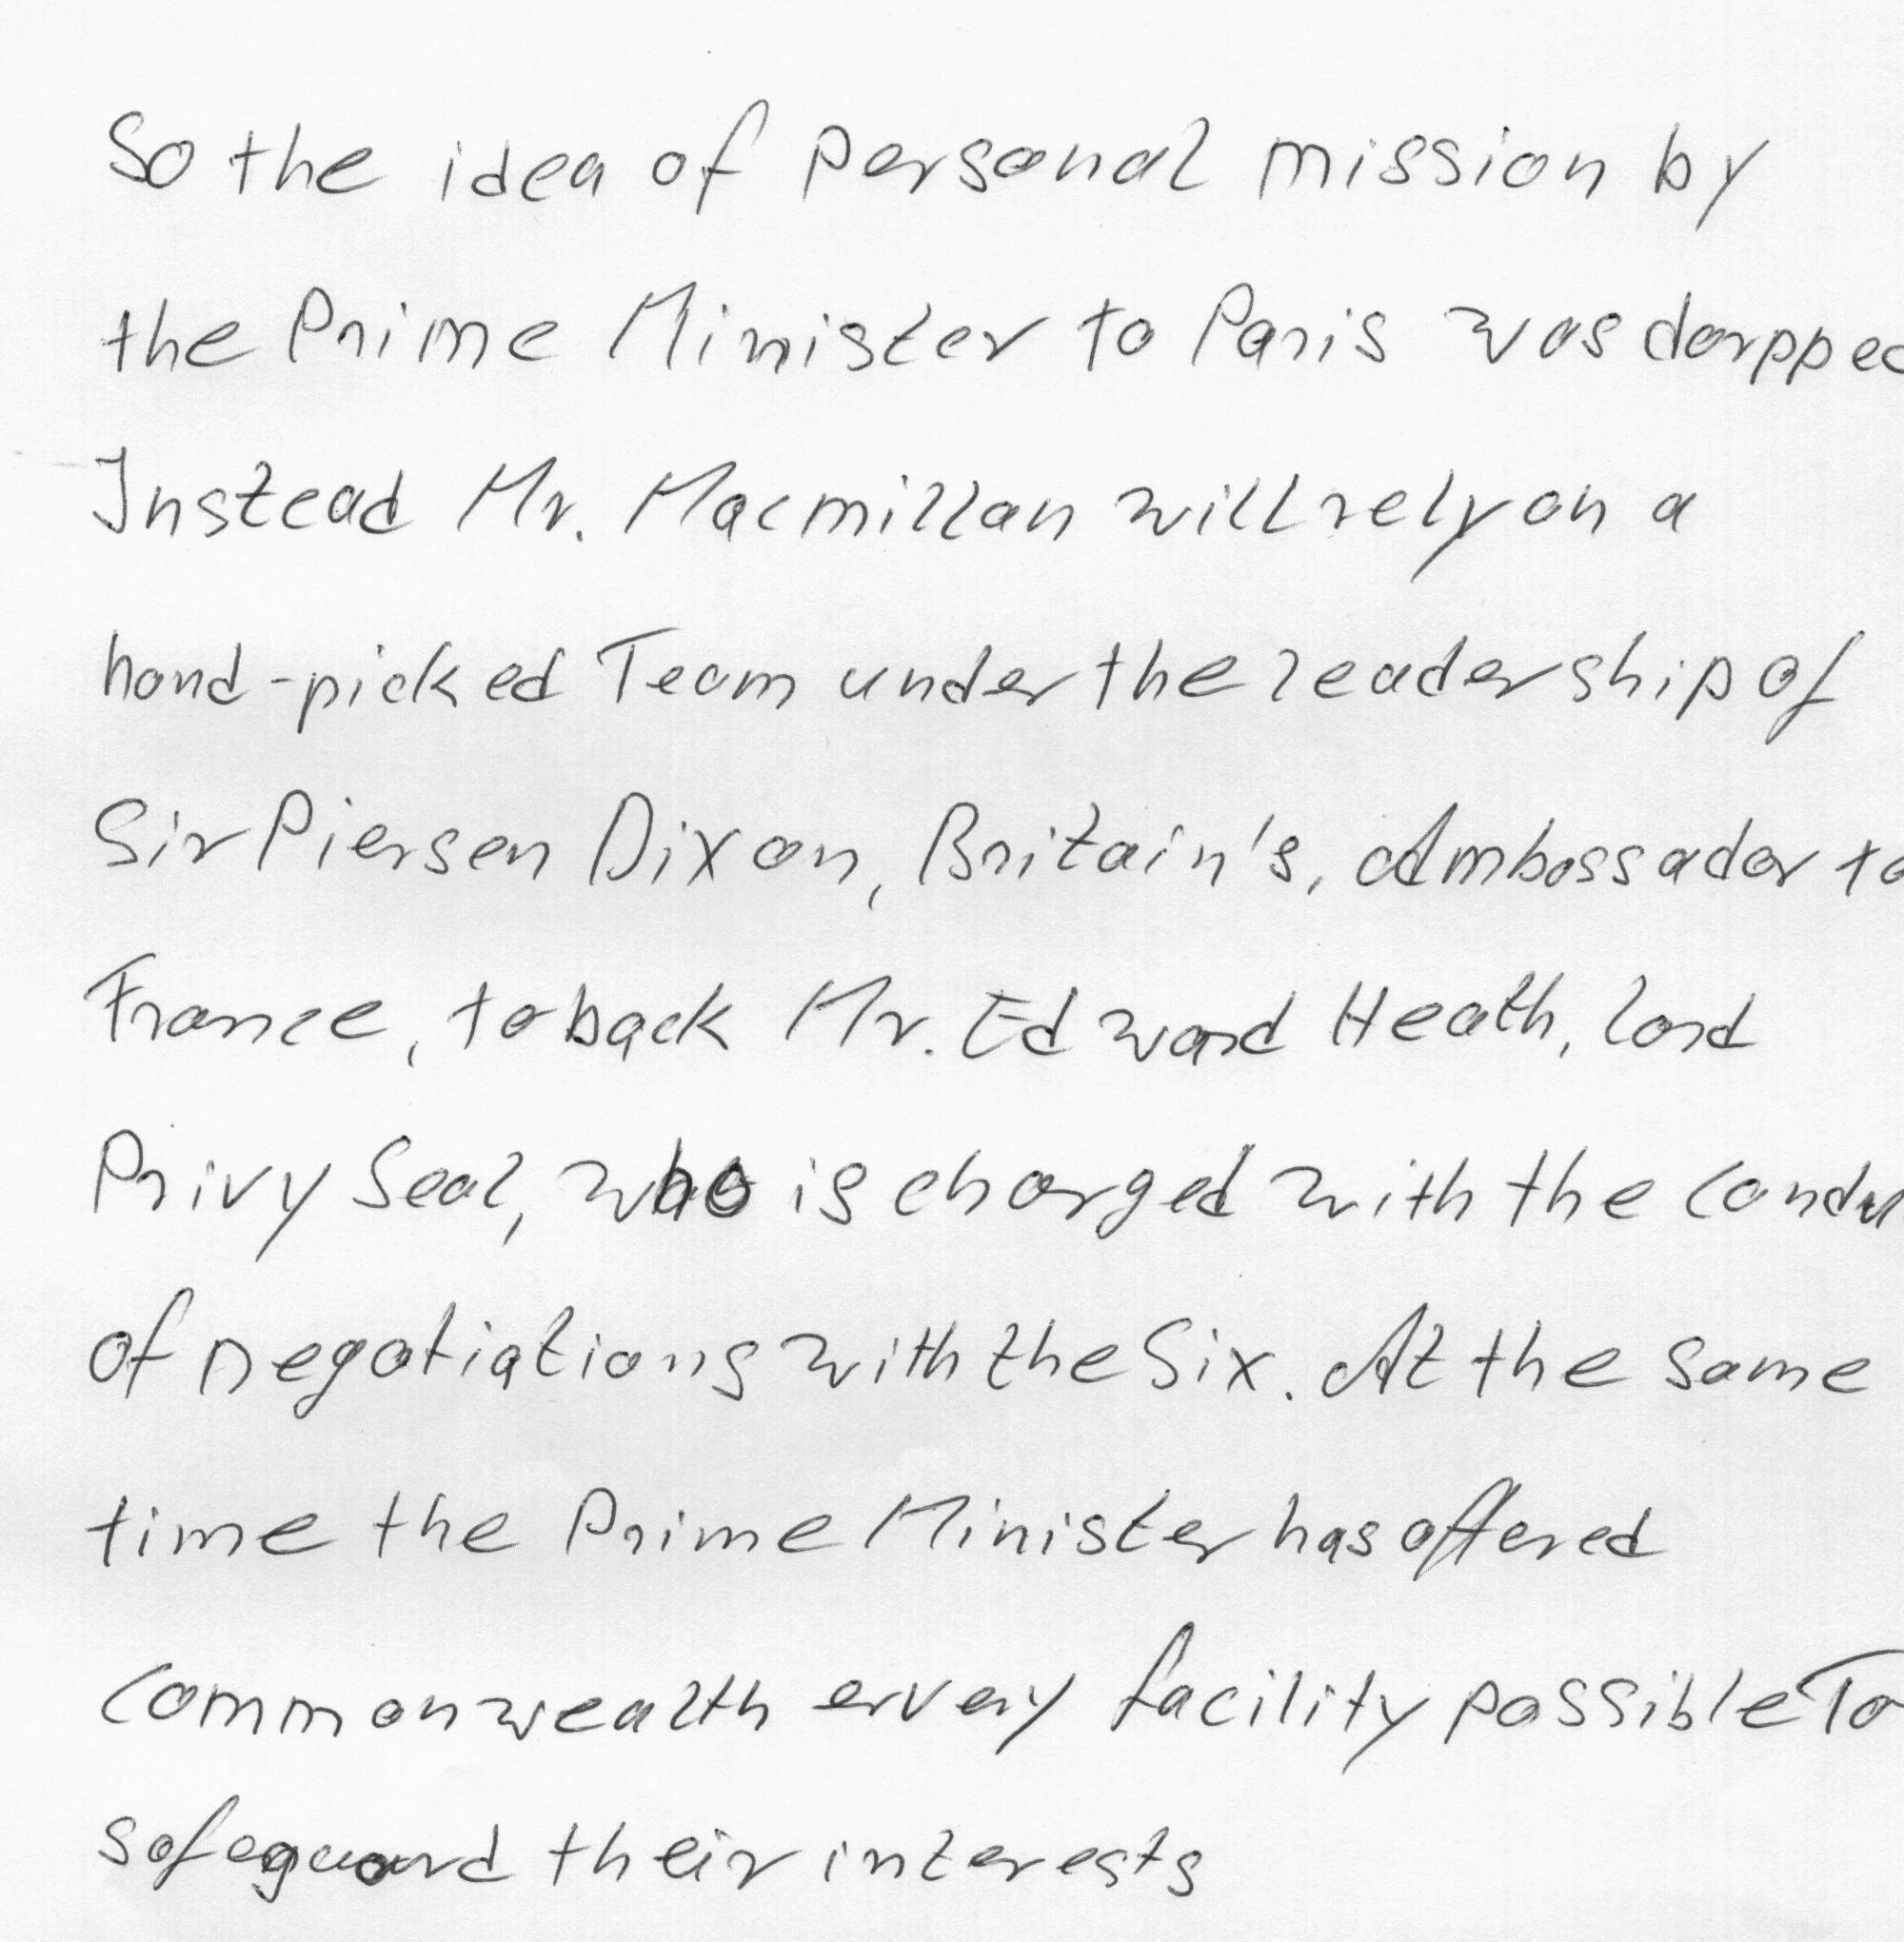 So the idea of personal mission by
the Prime Minister to Paris was dorpped
Instead Mr. Macmillan will rely on a
hand-picked Team under the leadership of
Sir Piersen Dixon, Britain's, Ambassador to
France, to back Mr. Edward Heath, lord
Privy Seal, who is charged with the condu
of negotiations with the Six. At the same
time the Prime Minister has offered
Commonwealth ervery facility possible To
safeguard their interests